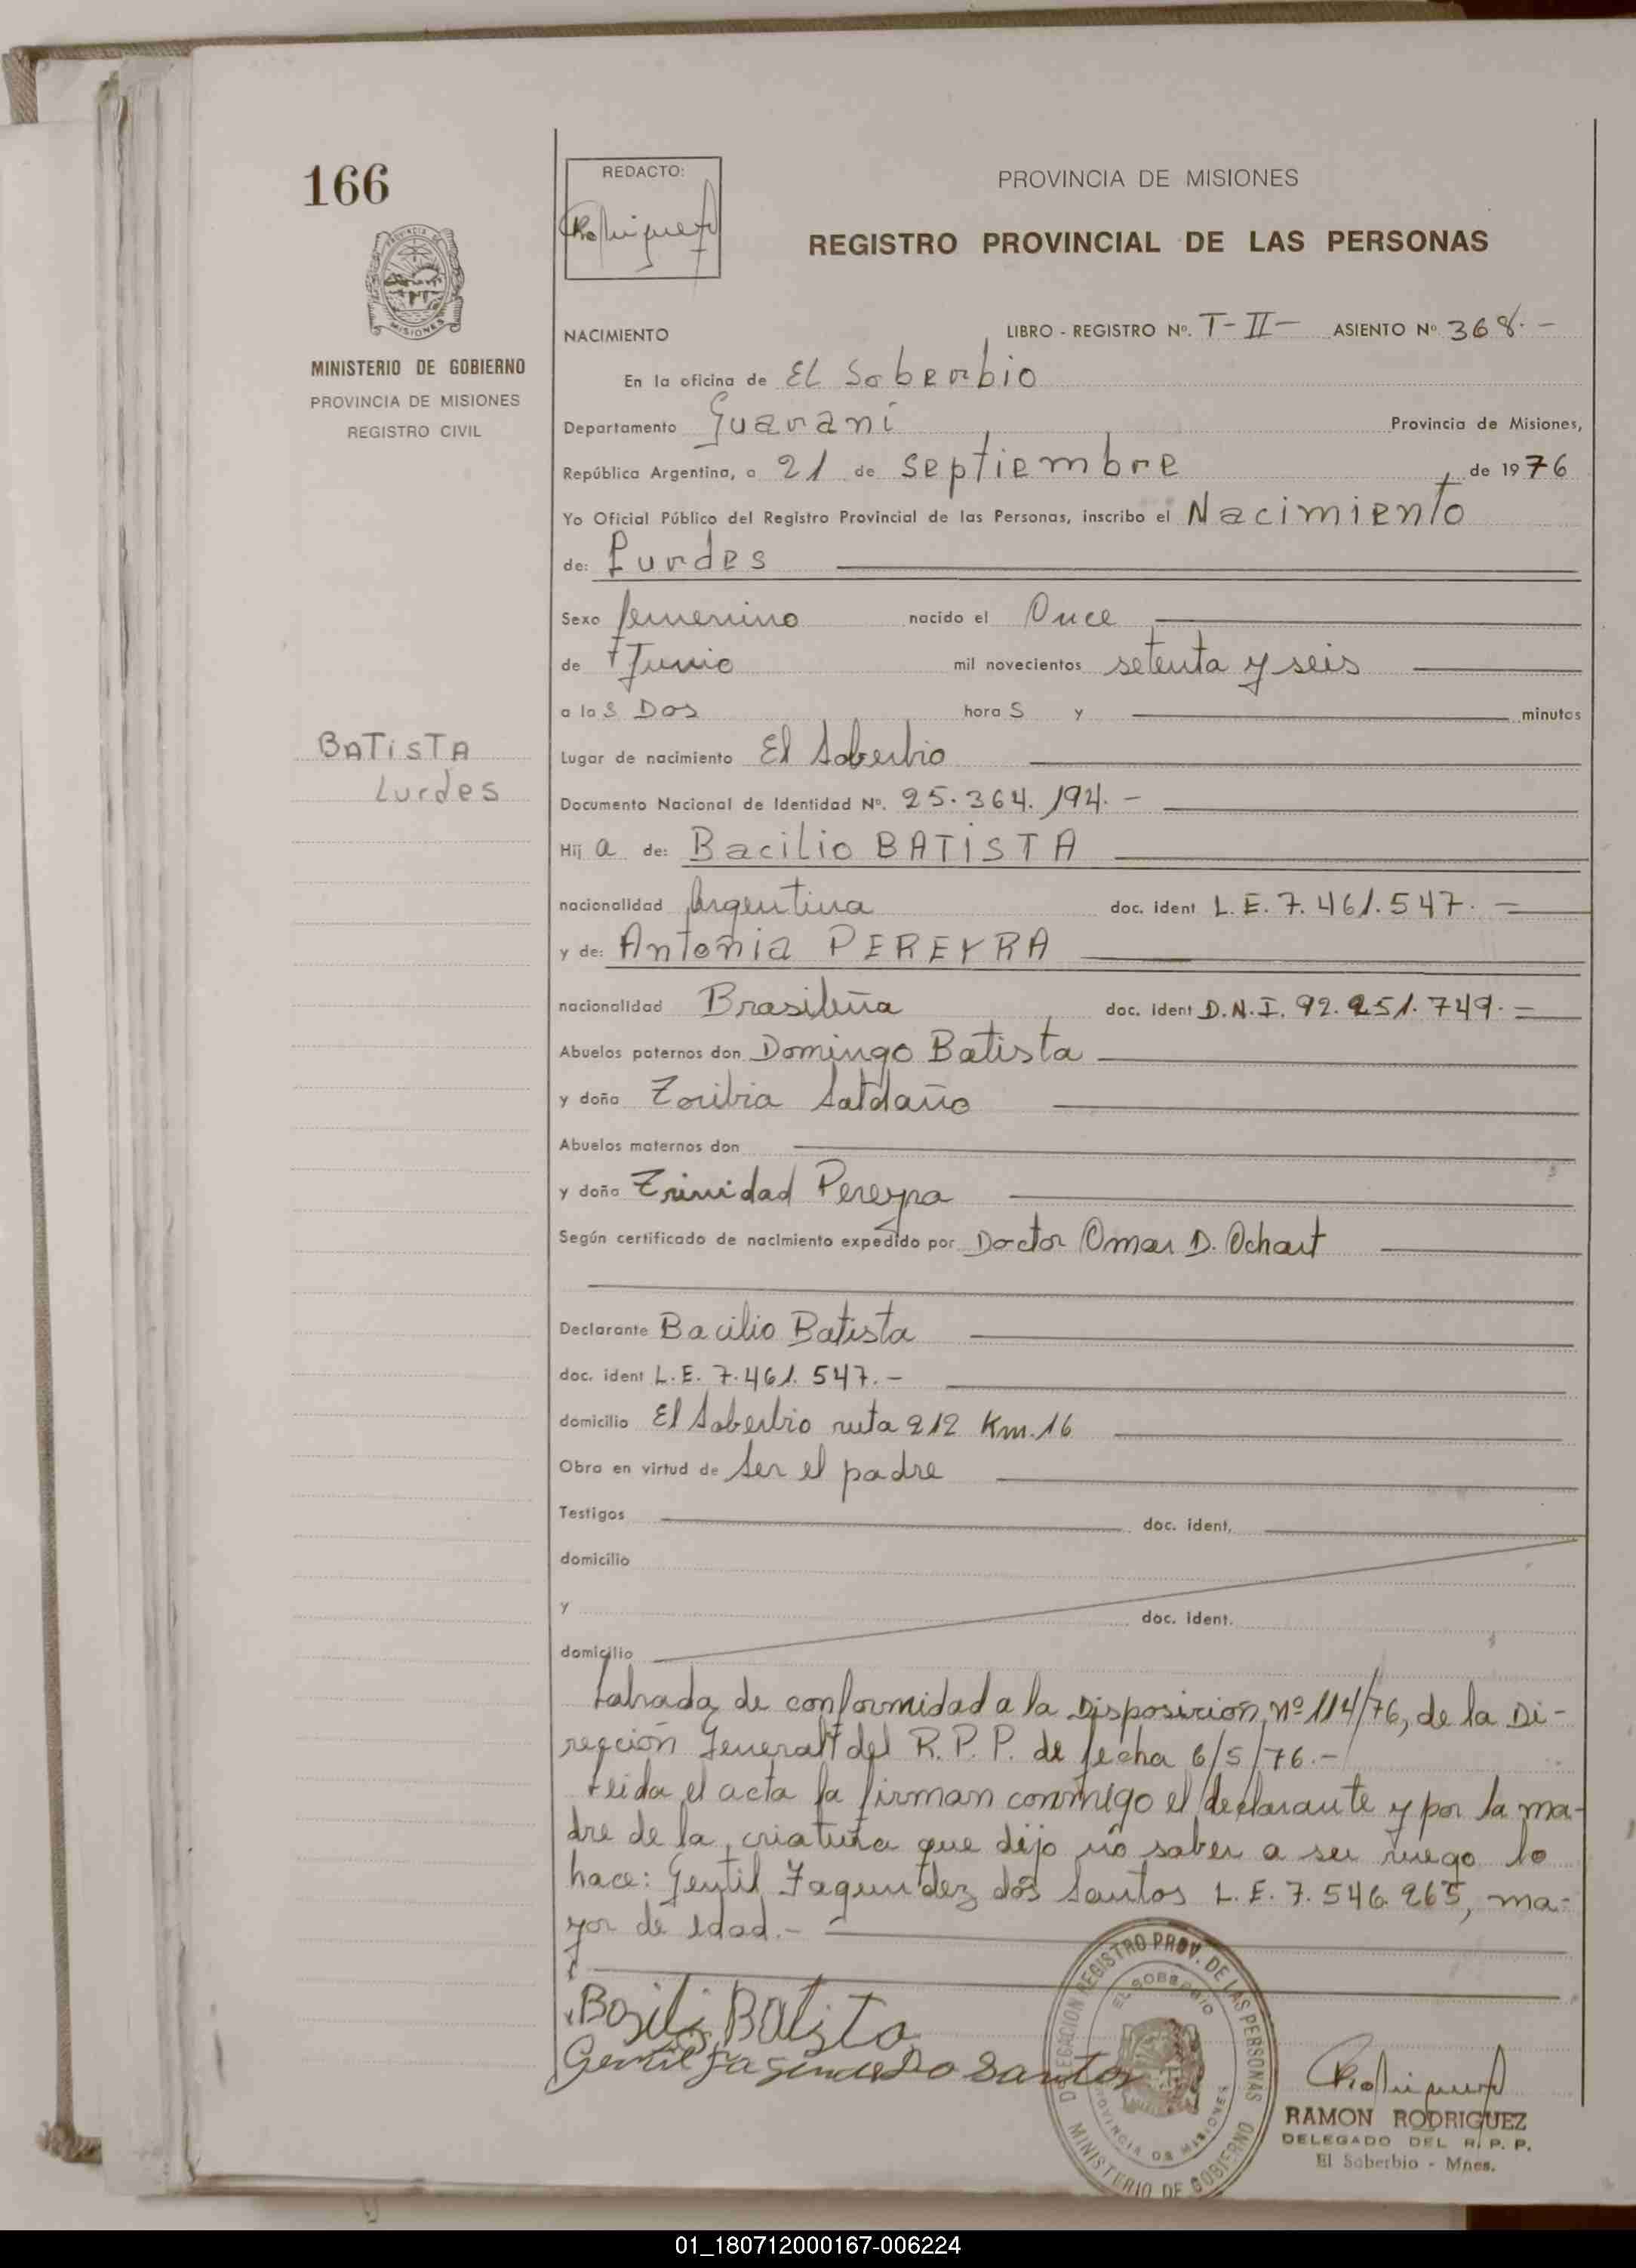 166
REDACTO:
PROVINCIA DE MISIONES
REGISTRO PROVINCIAL DE LAS PERSONAS
PROVINCIA DE
MISIONES
MINISTERIO DE GOBIERNO
PROVINCIA DE MISIONES
REGISTRO CIVIL
NACIMIENTO LIBRO - REGISTRO Nº. T-II- ASIENTO Nº 368.-
En la oficina de El Soberbio
Departamento Guarani Provincia de Misiones,
República Argentina, a 21 de septiembre de 1976
Yo Oficial Público del Registro Provincial de las Personas, inscribo el Nacimiento
de: Lurdes
Sexo femenino nacido el Once
de Junio mil novecientos setenta y seis
a las Dos horas y minutos
BATISTA
Lurdes
Lugar de nacimiento El Soberbio
Documento Nacional de Identidad Nº. 25.364.194.-
Hija de: Bacilio BATISTA
nacionalidad Argentina doc. ident L.E. 7.461.547.=
y de: Antonia PEREYRA
nacionalidad Brasileña doc. ident D.N.I. 92.251.749.=
Abuelos paternos don Domingo Batista
y doña Zoibia Satdaño
Abuelos maternos don
y doña Trinidad Pereyra
Según certificado de nacimiento expedido por Doctor Omar D. Ochart
Declarante Bacilio Batista
doc. ident L.E. 7.461.547.-
domicilio El Soberbio ruta 212 Km. 16
Obra en virtud de Ser el padre
Testigos doc. ident,
domicilio
y doc. ident.
domicilio
Labrada de conformidad a la Disposición, nº 114/76, de la Di-
rección General del R.P.P. de fecha 6/5/76.-
Leida el acta la firman conmigo el declarante y por la ma-
dre de la criatura que dijo no saber a su ruego lo
hace: Gentil Fagundez dos Santos L.E. 7.546.265, ma-
yor de edad.-
Basili Batista
Gentil Fagundes Do Santos
DELEGACION REGISTRO PROV. DE LAS PERSONAS
EL SOBERBIO
PROVINCIA DE MISIONES
MINISTERIO DE GOBIERNO
RAMON RODRIGUEZ
DELEGADO DEL R. P. P.
El Soberbio - Mnes.
01_180712000167-006224